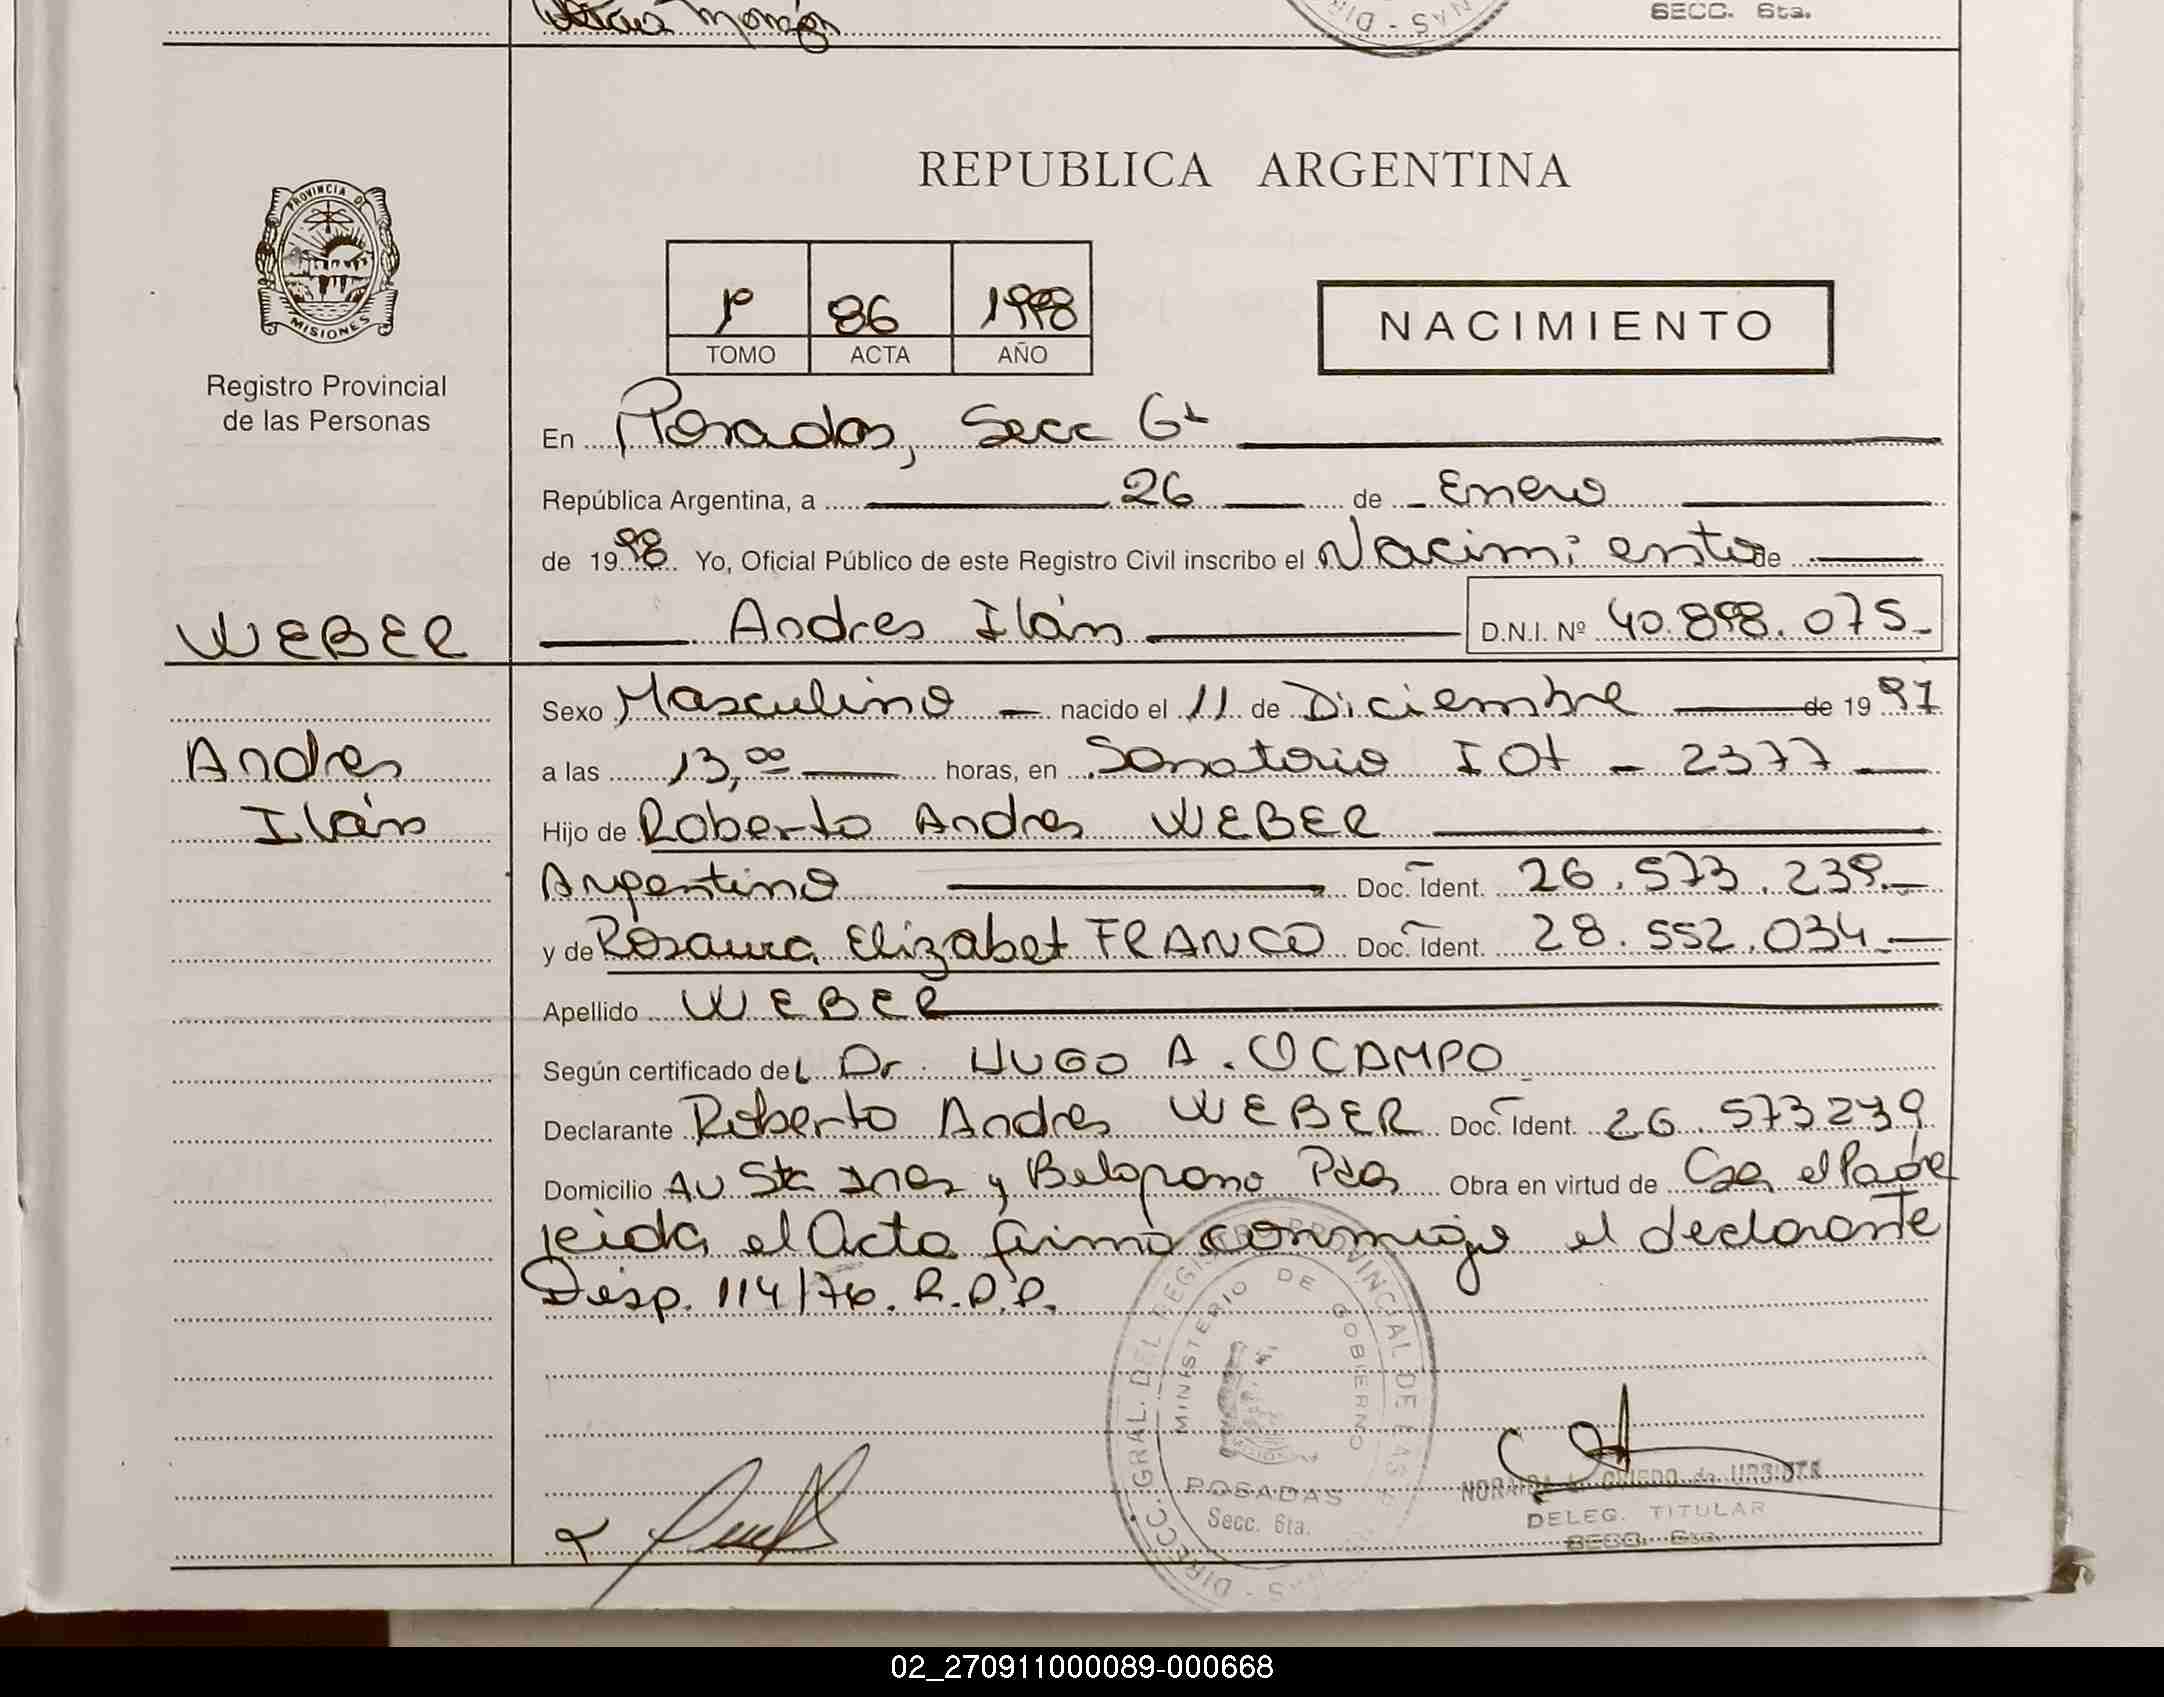 SECC. 6ta.
REPUBLICA ARGENTINA
PROVINCIA DE
MISIONES
Registro Provincial
de las Personas
86 1998
TOMO ACTA AÑO
NACIMIENTO
En Posadas, Secc 6ta
República Argentina, a 26 de Enero
de 1998 Yo, Oficial Público de este Registro Civil inscribo el Nacimiento de
WEBER
Andres Ilán D.N.I. Nº 40.898.075
Sexo Masculino nacido el 11 de Diciembre de 1997
Andres
a las 13,00 horas, en Sanatorio IOT - 2377
Ilán
Hijo de Roberto Andres WEBER
Argentino Doc. Ident. 26.573.239
y de Rosaura Elizabet FRANCO Doc. Ident. 28.552.034
Apellido WEBER
Según certificado del Dr. HUGO A. OCAMPO
Declarante Roberto Andres WEBER Doc. Ident. 26.573239
Domicilio AV Sta Ines y Belgrano Pdas Obra en virtud de Ser el Padre
leida el Acta firma conmigo el declarante
Disp. 114/76. R.P.P.
DIRECC. GRAL. DEL REGISTRO PROVINCIAL DE LAS
MINISTERIO DE GOBIERNO
POSADAS
Secc. 6ta.
OVIEDO de
DELEG. TITULAR
SECC. 6ta.
02_270911000089-000668